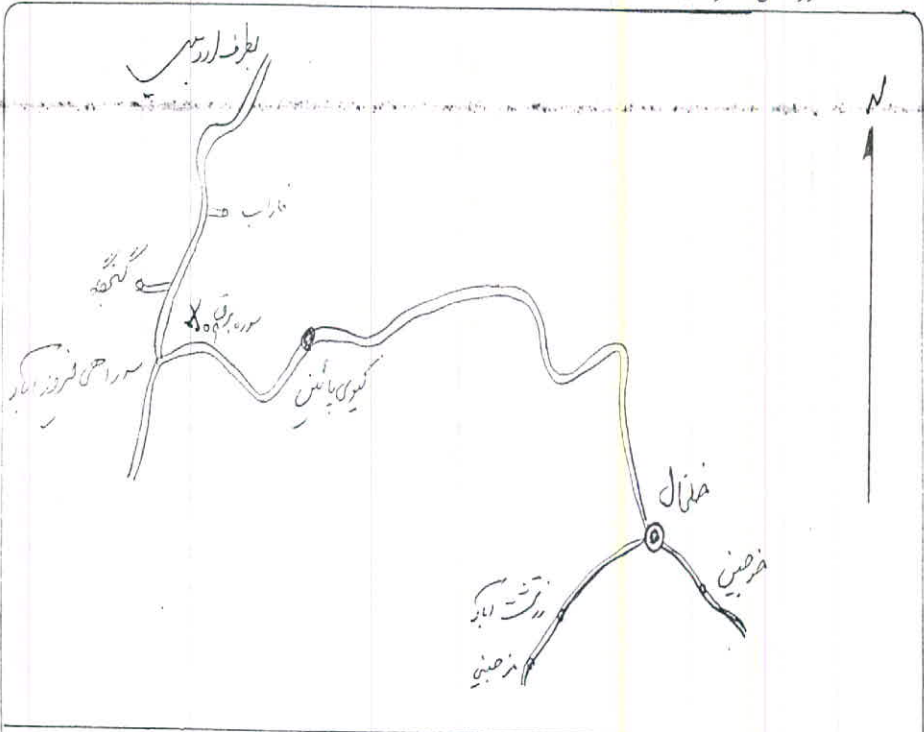 بطرف اردبیل
N
فاراب
گنجگاه
سوره برق
سه راهی فیروزآباد
گیوی پائین
خلخال
خوجین
زرتشت آباد